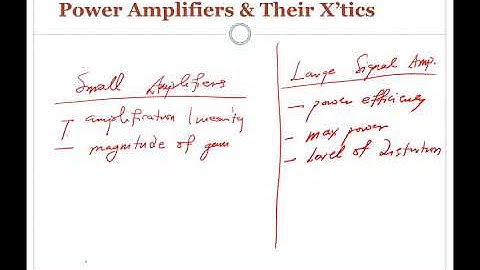 Power Amplifiers & Their X'tics
Small Amplifiers
- amplification linearity
- magnitude of gain
Large Signal Amp.
- power efficiency
- max power
- Level of distortion